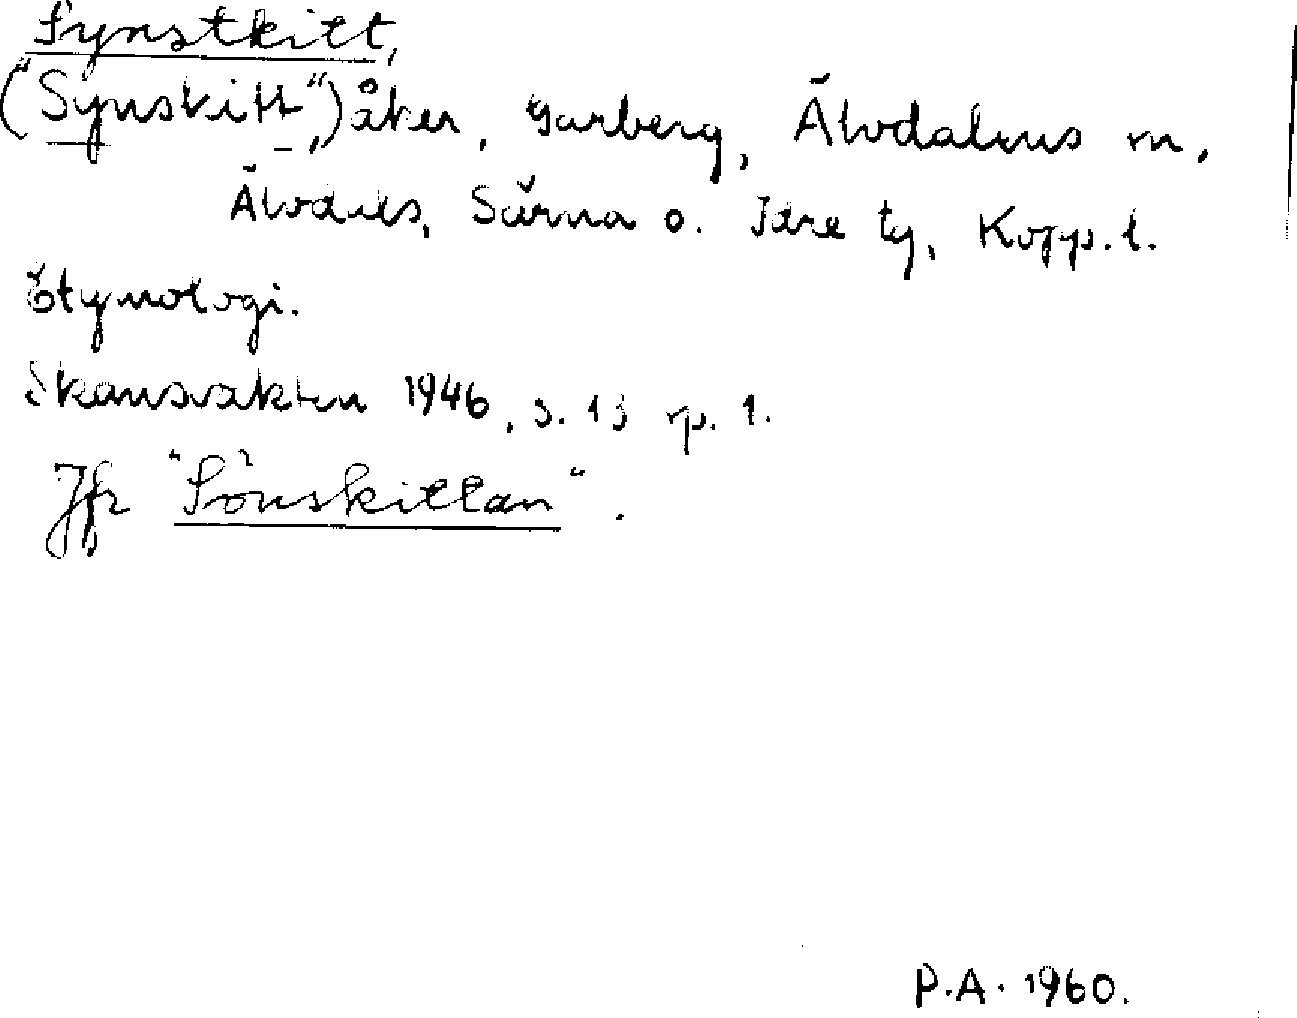 Synstkitt,
("Synskitt",) åker, Garberg, Älvdalens m,
Älvdals, Särna o. Idre tg, Kopp. l.
Etymologi.
Skansvakten 1946, s. 13 sp. 1.
Jfr "Sönskittan".
P.A. 1960.